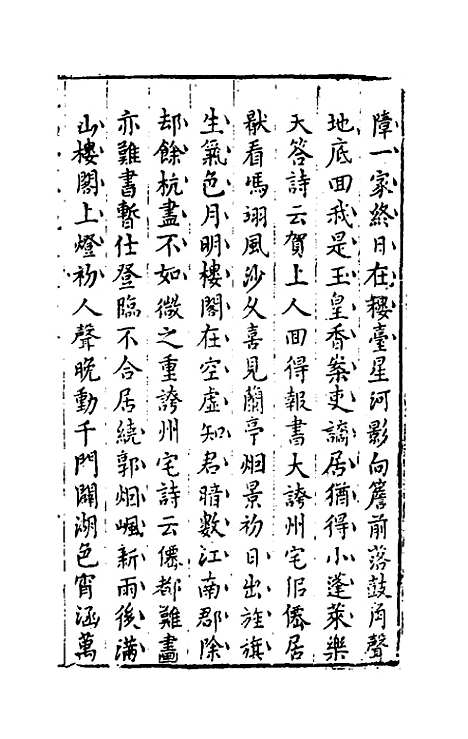 障一家終日在樓臺星河影向簷前落鼓角聲
地底回我是玉皇香案吏謫居猶得小蓬萊樂
天答詩云賀上人回得報書大誇州宅似僊居
猒看馮翊風沙久喜見蘭亭烟景初日出旌旗
生氣色月明樓閣在空虛知君暗數江南郡除
却餘杭盡不如微之重誇州宅詩云僊都難畫
亦難書暫仕登臨不合居繞郭烟嵐新雨後滿
山樓閣上燈初人聲晚動千門闢湖色宵涵萬